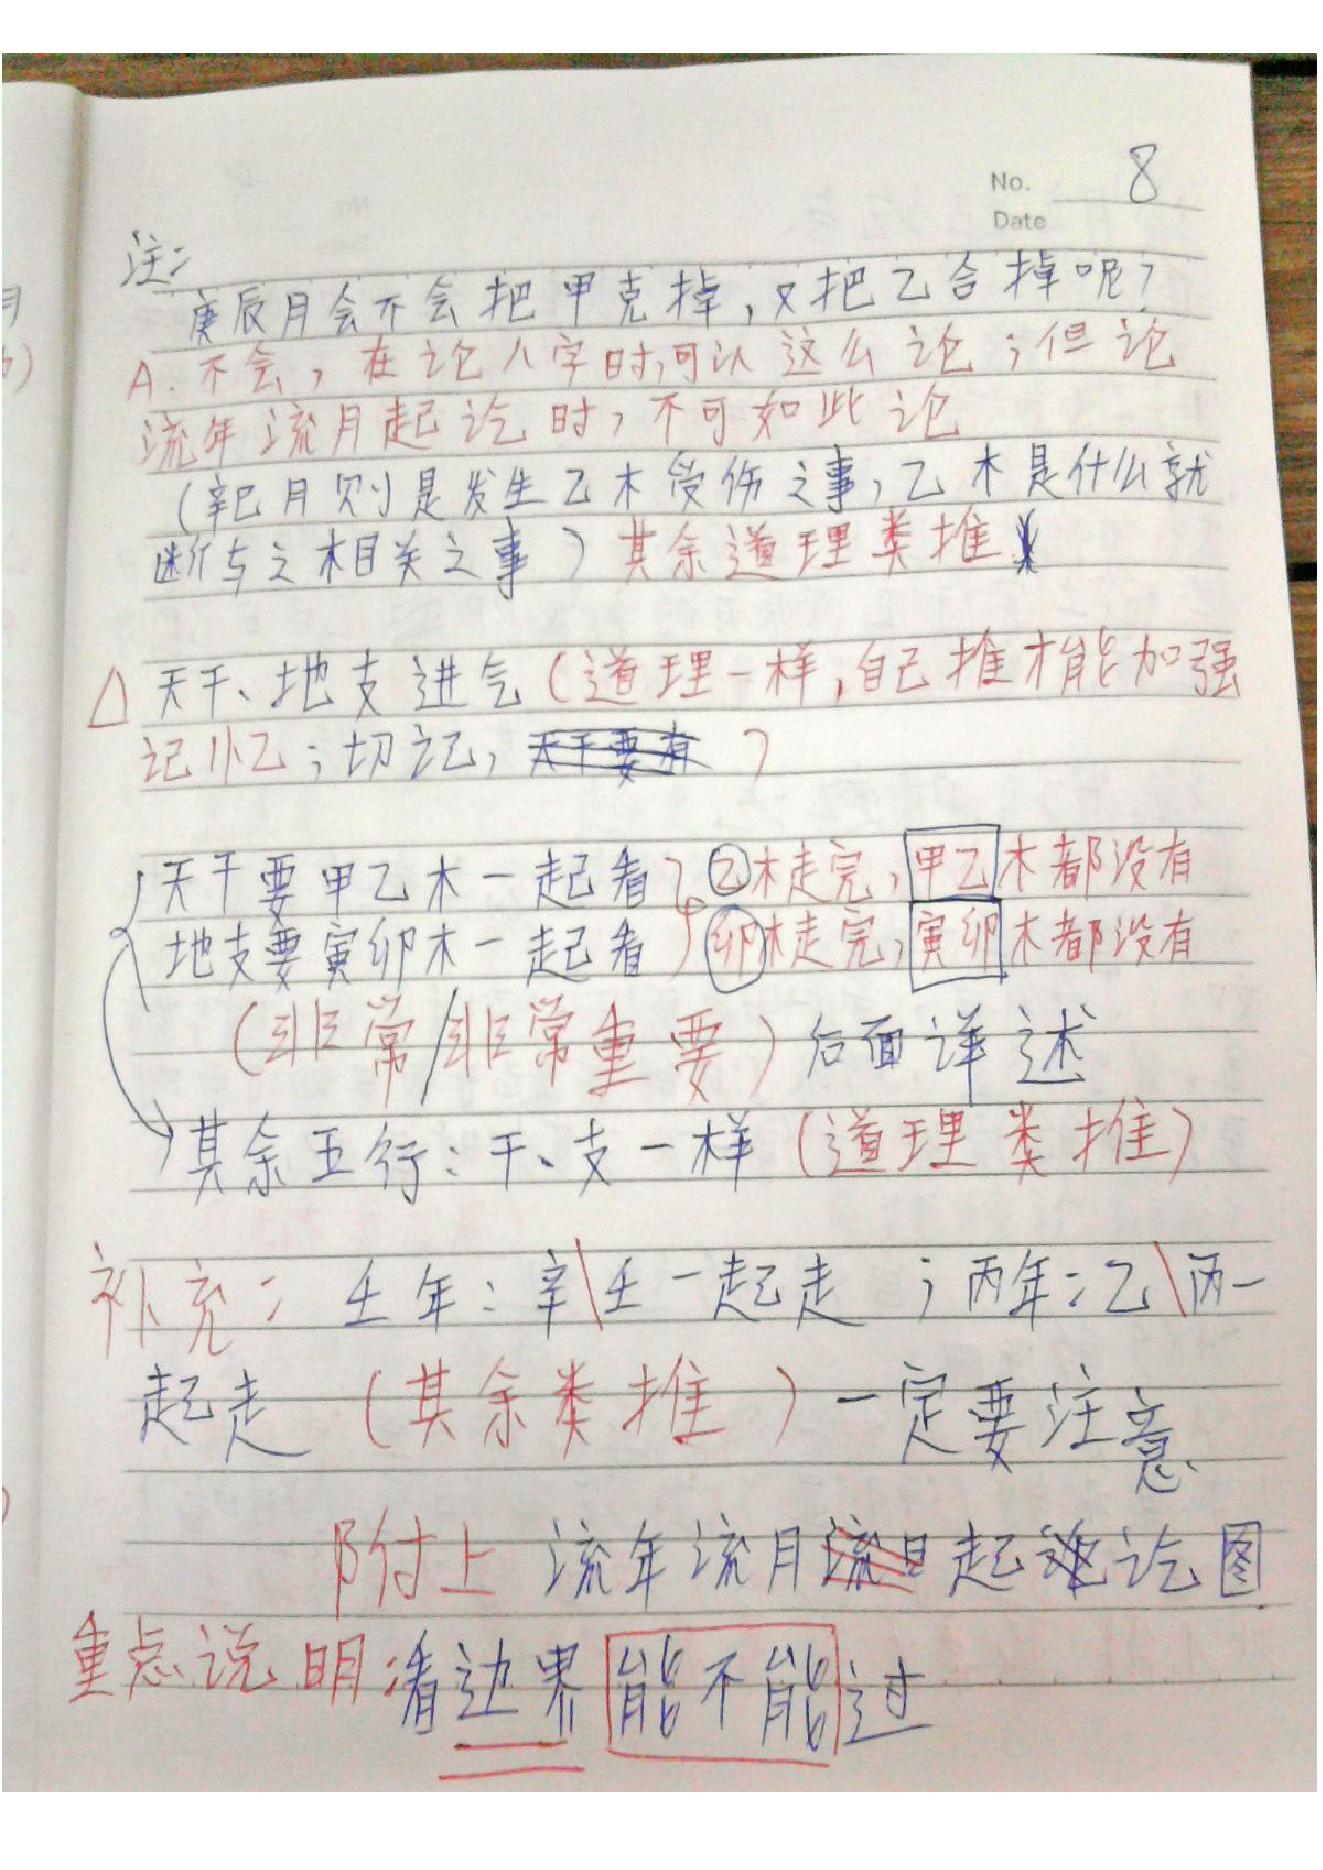 No. 8
Date
注:
庚辰月会不会把甲克掉,又把乙合掉呢?
A.不会,在论八字时,可以这么论;但论
流年流月起讫时,不可如此论
(辛巳月则是发生乙木受伤之事,乙木是什么就
断与之相关之事)其余道理类推
△天干、地支进气(道理一样,自己推才能加强
记忆;切记,天干要有)
天干要甲乙木一起看 乙木走完,甲乙木都没有
地支要寅卯木一起看 卯木走完,寅卯木都没有
(非常/非常重要)后面详述
其余五行:干、支一样(道理类推)
补充:壬年:辛\壬一起走;丙年:乙\丙一
起走(其余类推)一定要注意
附上流年流月流日起讫图
重点说明:看边界能不能过